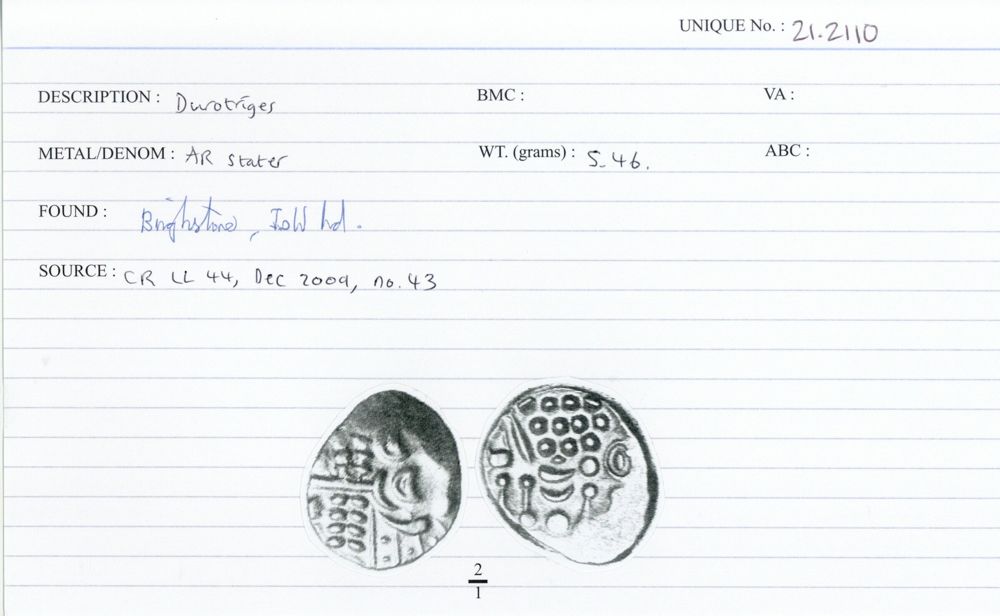 UNIQUE No. : 21.2110
DESCRIPTION : Durotriges BMC : VA :
METAL/DENOM : AR stater WT. (grams) : 5.46. ABC :
FOUND : Brighstone, IoW hd.
SOURCE : CR LL 44, Dec 2009, no. 43
2
1